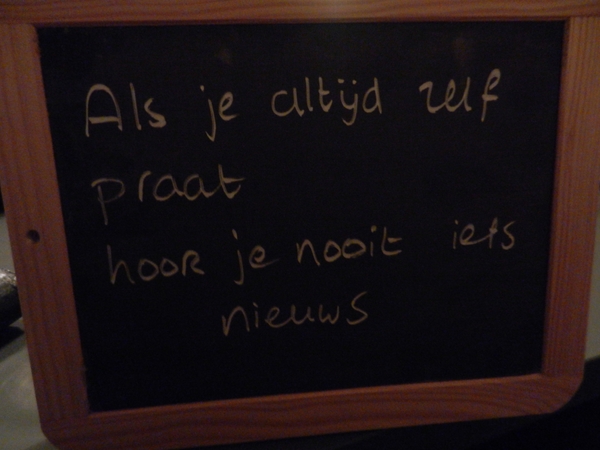 Als je altijd zelf
praat
hoor je nooit iets
nieuws